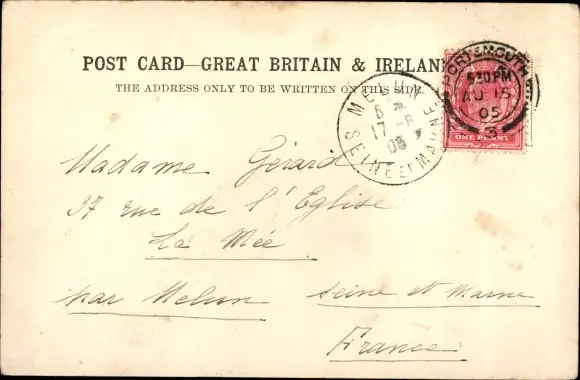 POST CARD—GREAT BRITAIN & IRELAND
THE ADDRESS ONLY TO BE WRITTEN ON THIS SIDE.
PORTSMOUTH
5 30 PM
AU 15
05
3
ONE PENNY
MELUN
5
17 -8
05
SEINE ET MARNE
Madame Gérard
37 rue de l'Eglise
La Mée
par Melun Seine et Marne
France